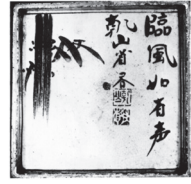 臨風如有声
乾山省書